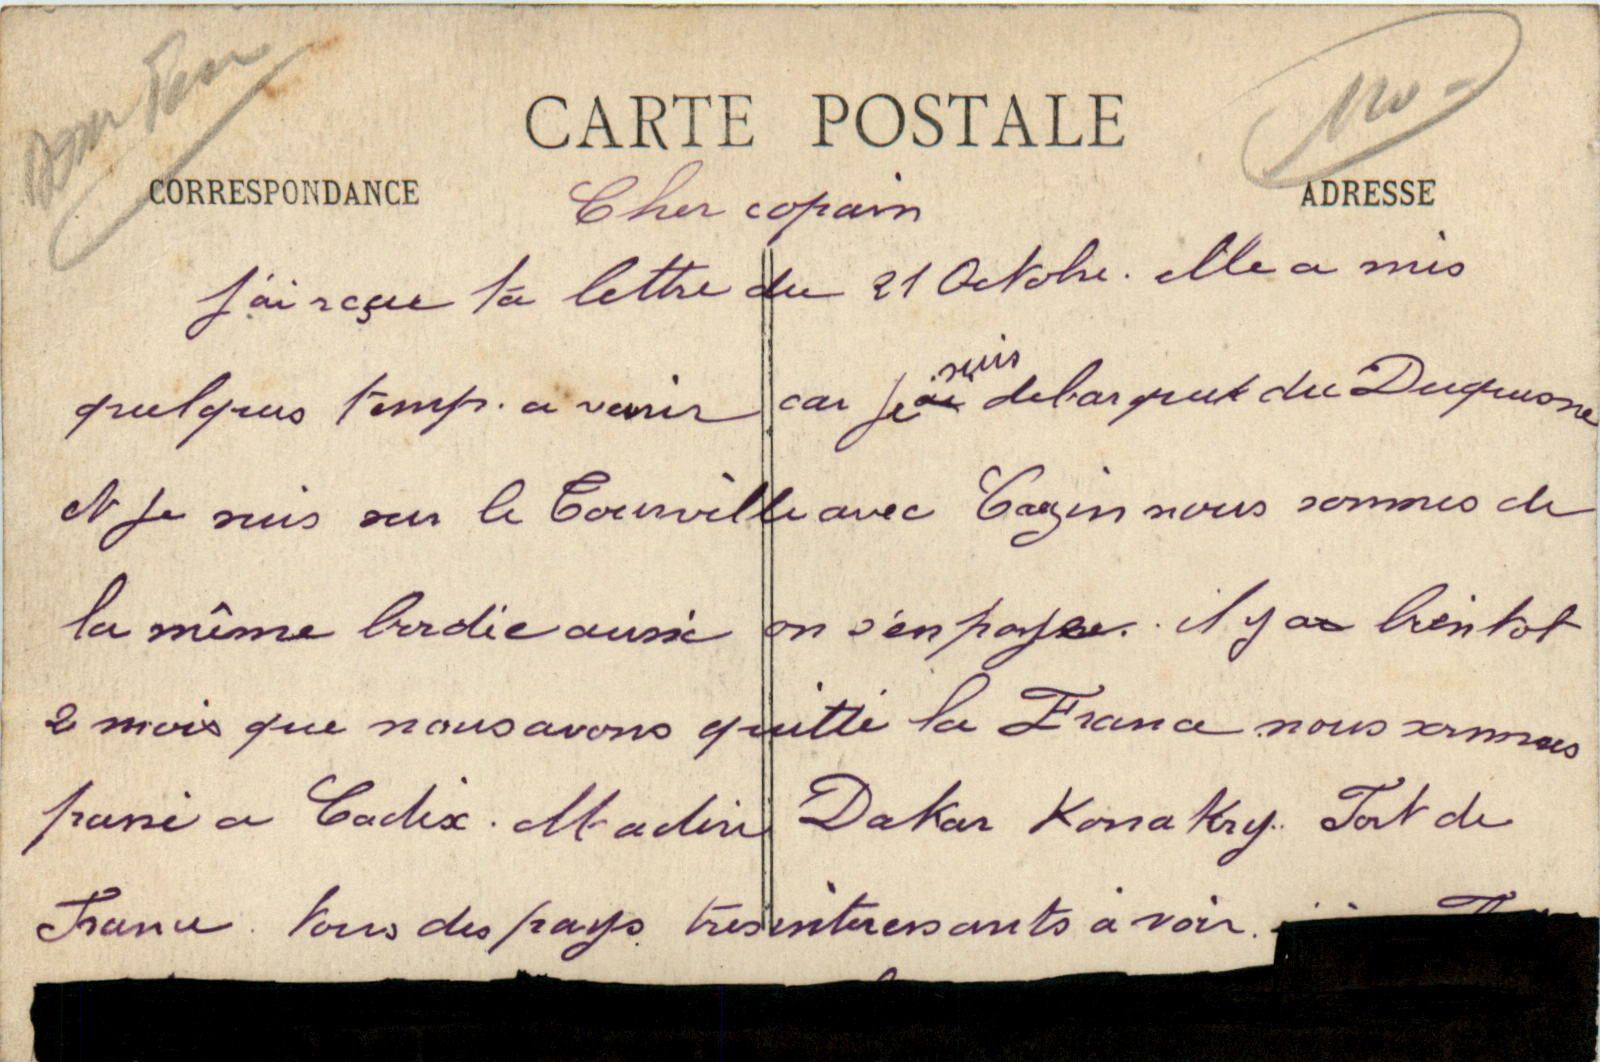 CARTE POSTALE
CORRESPONDANCE
ADRESSE
Cher copain
J'ai reçue ta lettre du 21 Octobre. elle a mis
quelques temp. a venir car je suis debarquet du Duquesne
et je suis sur le Tourville avec Cazin nous sommes de
la même bordée aussi on s'en paye. il y a bientot
2 mois que nous avons quitté la France nous sommes
passé a Cadix. Madère Dakar Konakry. Fort de
France. tous des pays tres interessants à voir.